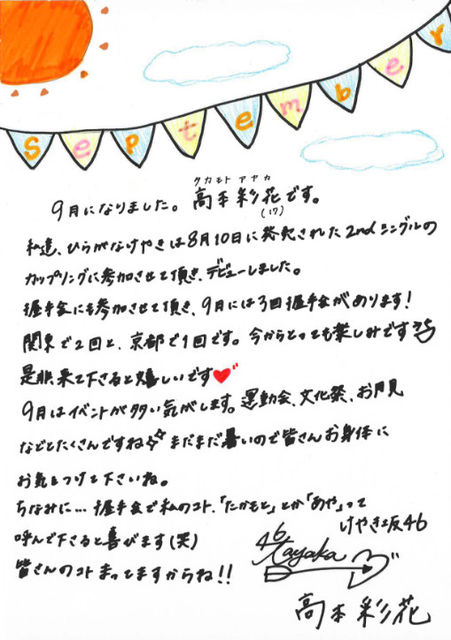 September
タカモト アヤカ
9月になりました。高本彩花です。
(17)
私達、ひらがなけやきは8月10日に発売された2ndシングルの
カップリングに参加させて頂き、デビューしました。
握手会にも参加させて頂き、9月には3回握手会があります!
関東で2回と、京都で1回です。今からとっても楽しみです
是非来て下さると嬉しいです♥
9月はイベントが多い気がします。運動会、文化祭、お月見
などとたくさんですね まだまだ暑いので皆さんお身体に
お気をつけて下さいね。
ちなみに…握手会で私のコト、「たかもと」とか「あや」って
呼んで下さると喜びます(笑)
皆さんのコトまってますからね!!
けやき坂46
46
Ayaka
高本彩花